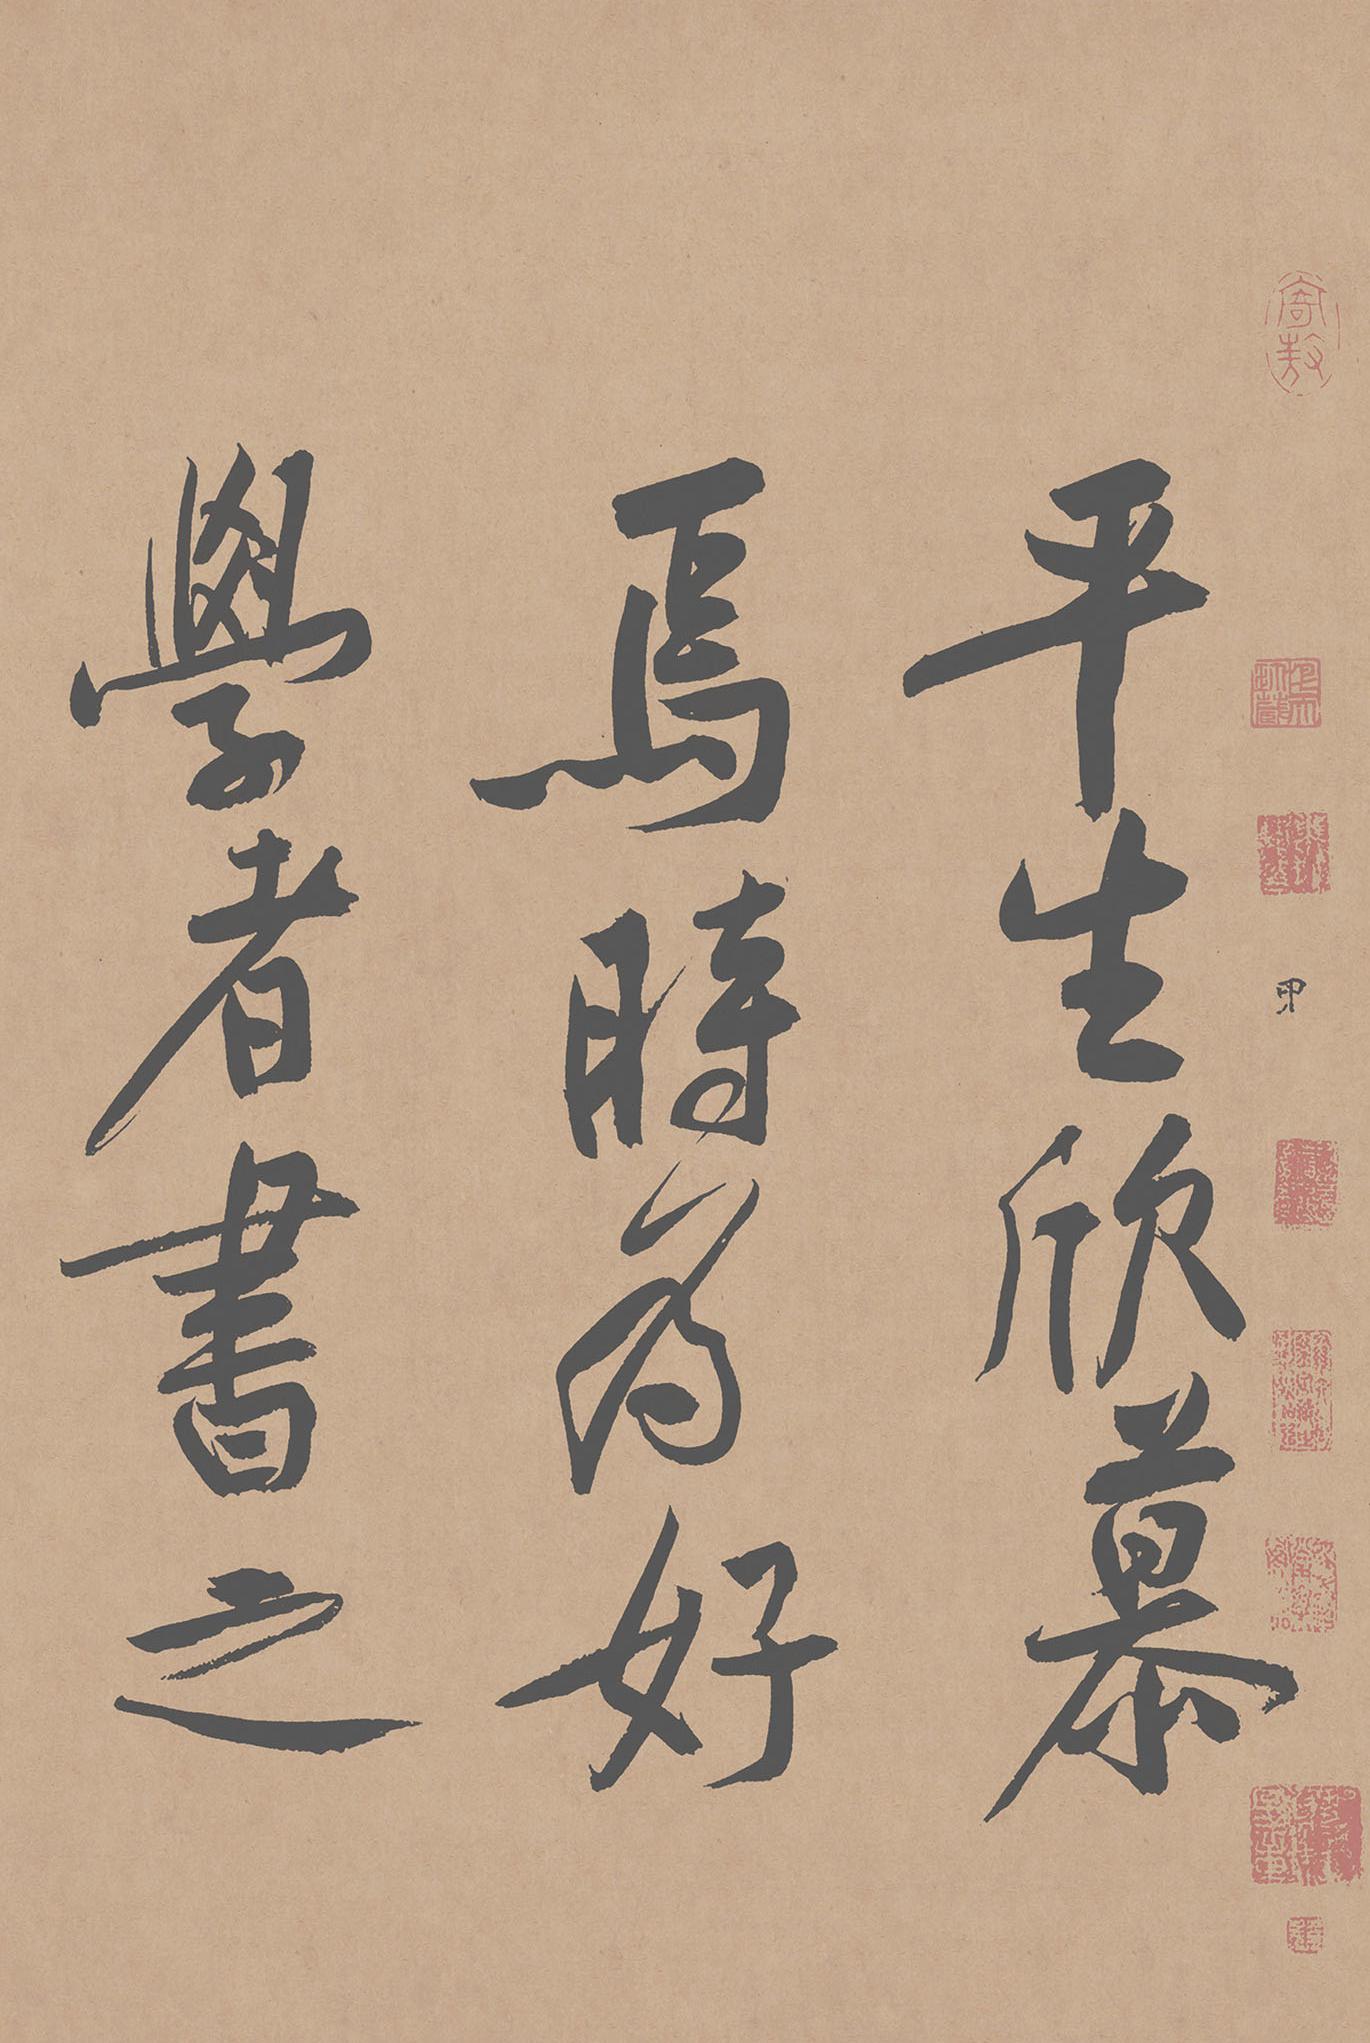 平生欣慕
焉時為好
學者書之